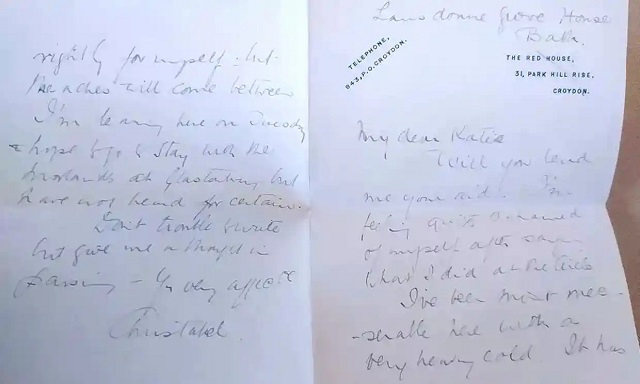 Lansdowne Grove House
Bath.
TELEPHONE,
943, P.O. CROYDON.
THE RED HOUSE,
31, PARK HILL RISE,
CROYDON.
My dear Katie
Will you lend
me your aid. I'm
feeling quite ashamed
of myself after
what I did at the
I've been most mee-
-serable here with a
very heavy cold. It has
rightly for myself - but
the aches will come between
I'm leaving here on Tuesday
& hope to go & stay with the
at Glastonbury but
have not heard for certain.
Don't trouble to write
but give me a thought in
passing - Yr very affecte
Christabel.